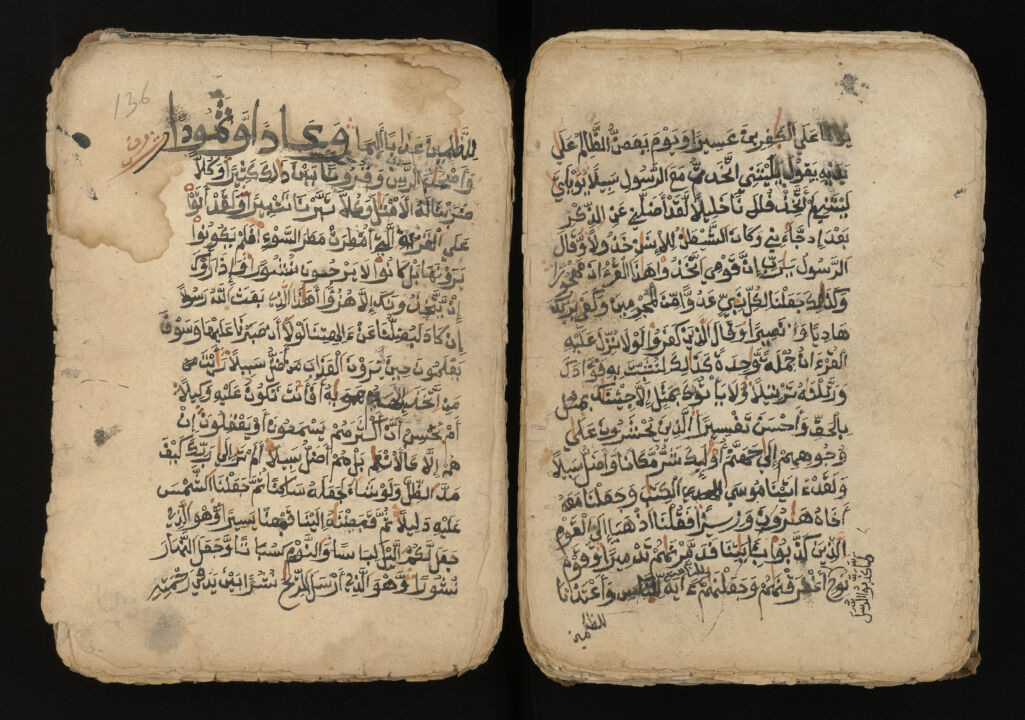 يوما على الكفرين عسيرا ويوم يعض الظالم على
يديه يقول يليتني اتخذت مع الرسول سبيلا يويلتى
ليتني لم أتخذ فلانا خليلا لقد أضلني عن الذكر
بعد إذ جاءني وكان الشيطن للإنسن خذولا وقال
الرسول يرب إن قومي اتخذوا هذا القرءان مهجورا
وكذلك جعلنا لكل نبيء عدوا من المجرمين وكفى بربك
هاديا ونصيرا وقال الذين كفروا لولا نزل عليه
القرءان جملة وحدة كذلك لنثبت به فؤادك
ورتلنه ترتيلا ولا ياتونك بمثل إلا جئنك
بالحق وأحسن تفسيرا الذين يحشرون على
وجوههم إلى جهنم أوليك شر مكانا وأضل سبيلا
ولقد ءاتينا موسى الكتب وجعلنا معه
أخاه هرون وزيرا فقلنا اذهبا إلى القوم
الذين كذبوا بئايتنا فدمرنهم تدميرا وقوم
نوح أغرقنهم وجعلنهم للناس ءاية وأعتدنا
لما كذبوا الرسل
للظلمين
136
للظلمين عذابا أليما وعادا وثمودا
وأصحب الرس وقرونا بين ذلك كثيرا وكلا
ضربنا له الامثل وكلا تبرنا تتبيرا ولقد أتوا
على القرية التي أمطرت مطر السوء أفلم يكونوا
يرونها بل كانوا لا يرجون نشورا وإذا رأوك
إن يتخذونك إلا هزؤا أهذا الذي بعث الله رسولا
إن كاد ليضلنا عن ءالهتنا لولا أن صبرنا عليها وسوف
يعلمون حين يرون العذاب من أضل سبيلا أرايت
من اتخذ إلهه هويه أفأنت تكون عليه وكيلا
أم تحسب أن أكثرهم يسمعون أو يعقلون إن
هم إلا كالانعم بل هم أضل سبيلا ألم تر إلى ربك كيف
مد الظل ولو شاء لجعله ساكنا ثم جعلنا الشمس
عليه دليلا ثم قبضنه إلينا قبضا يسيرا وهو الذي
جعل لكم اليل لباسا والنوم سباتا وجعل النهار
نشورا وهو الذي أرسل الريح نشرا بين يدي رحمته